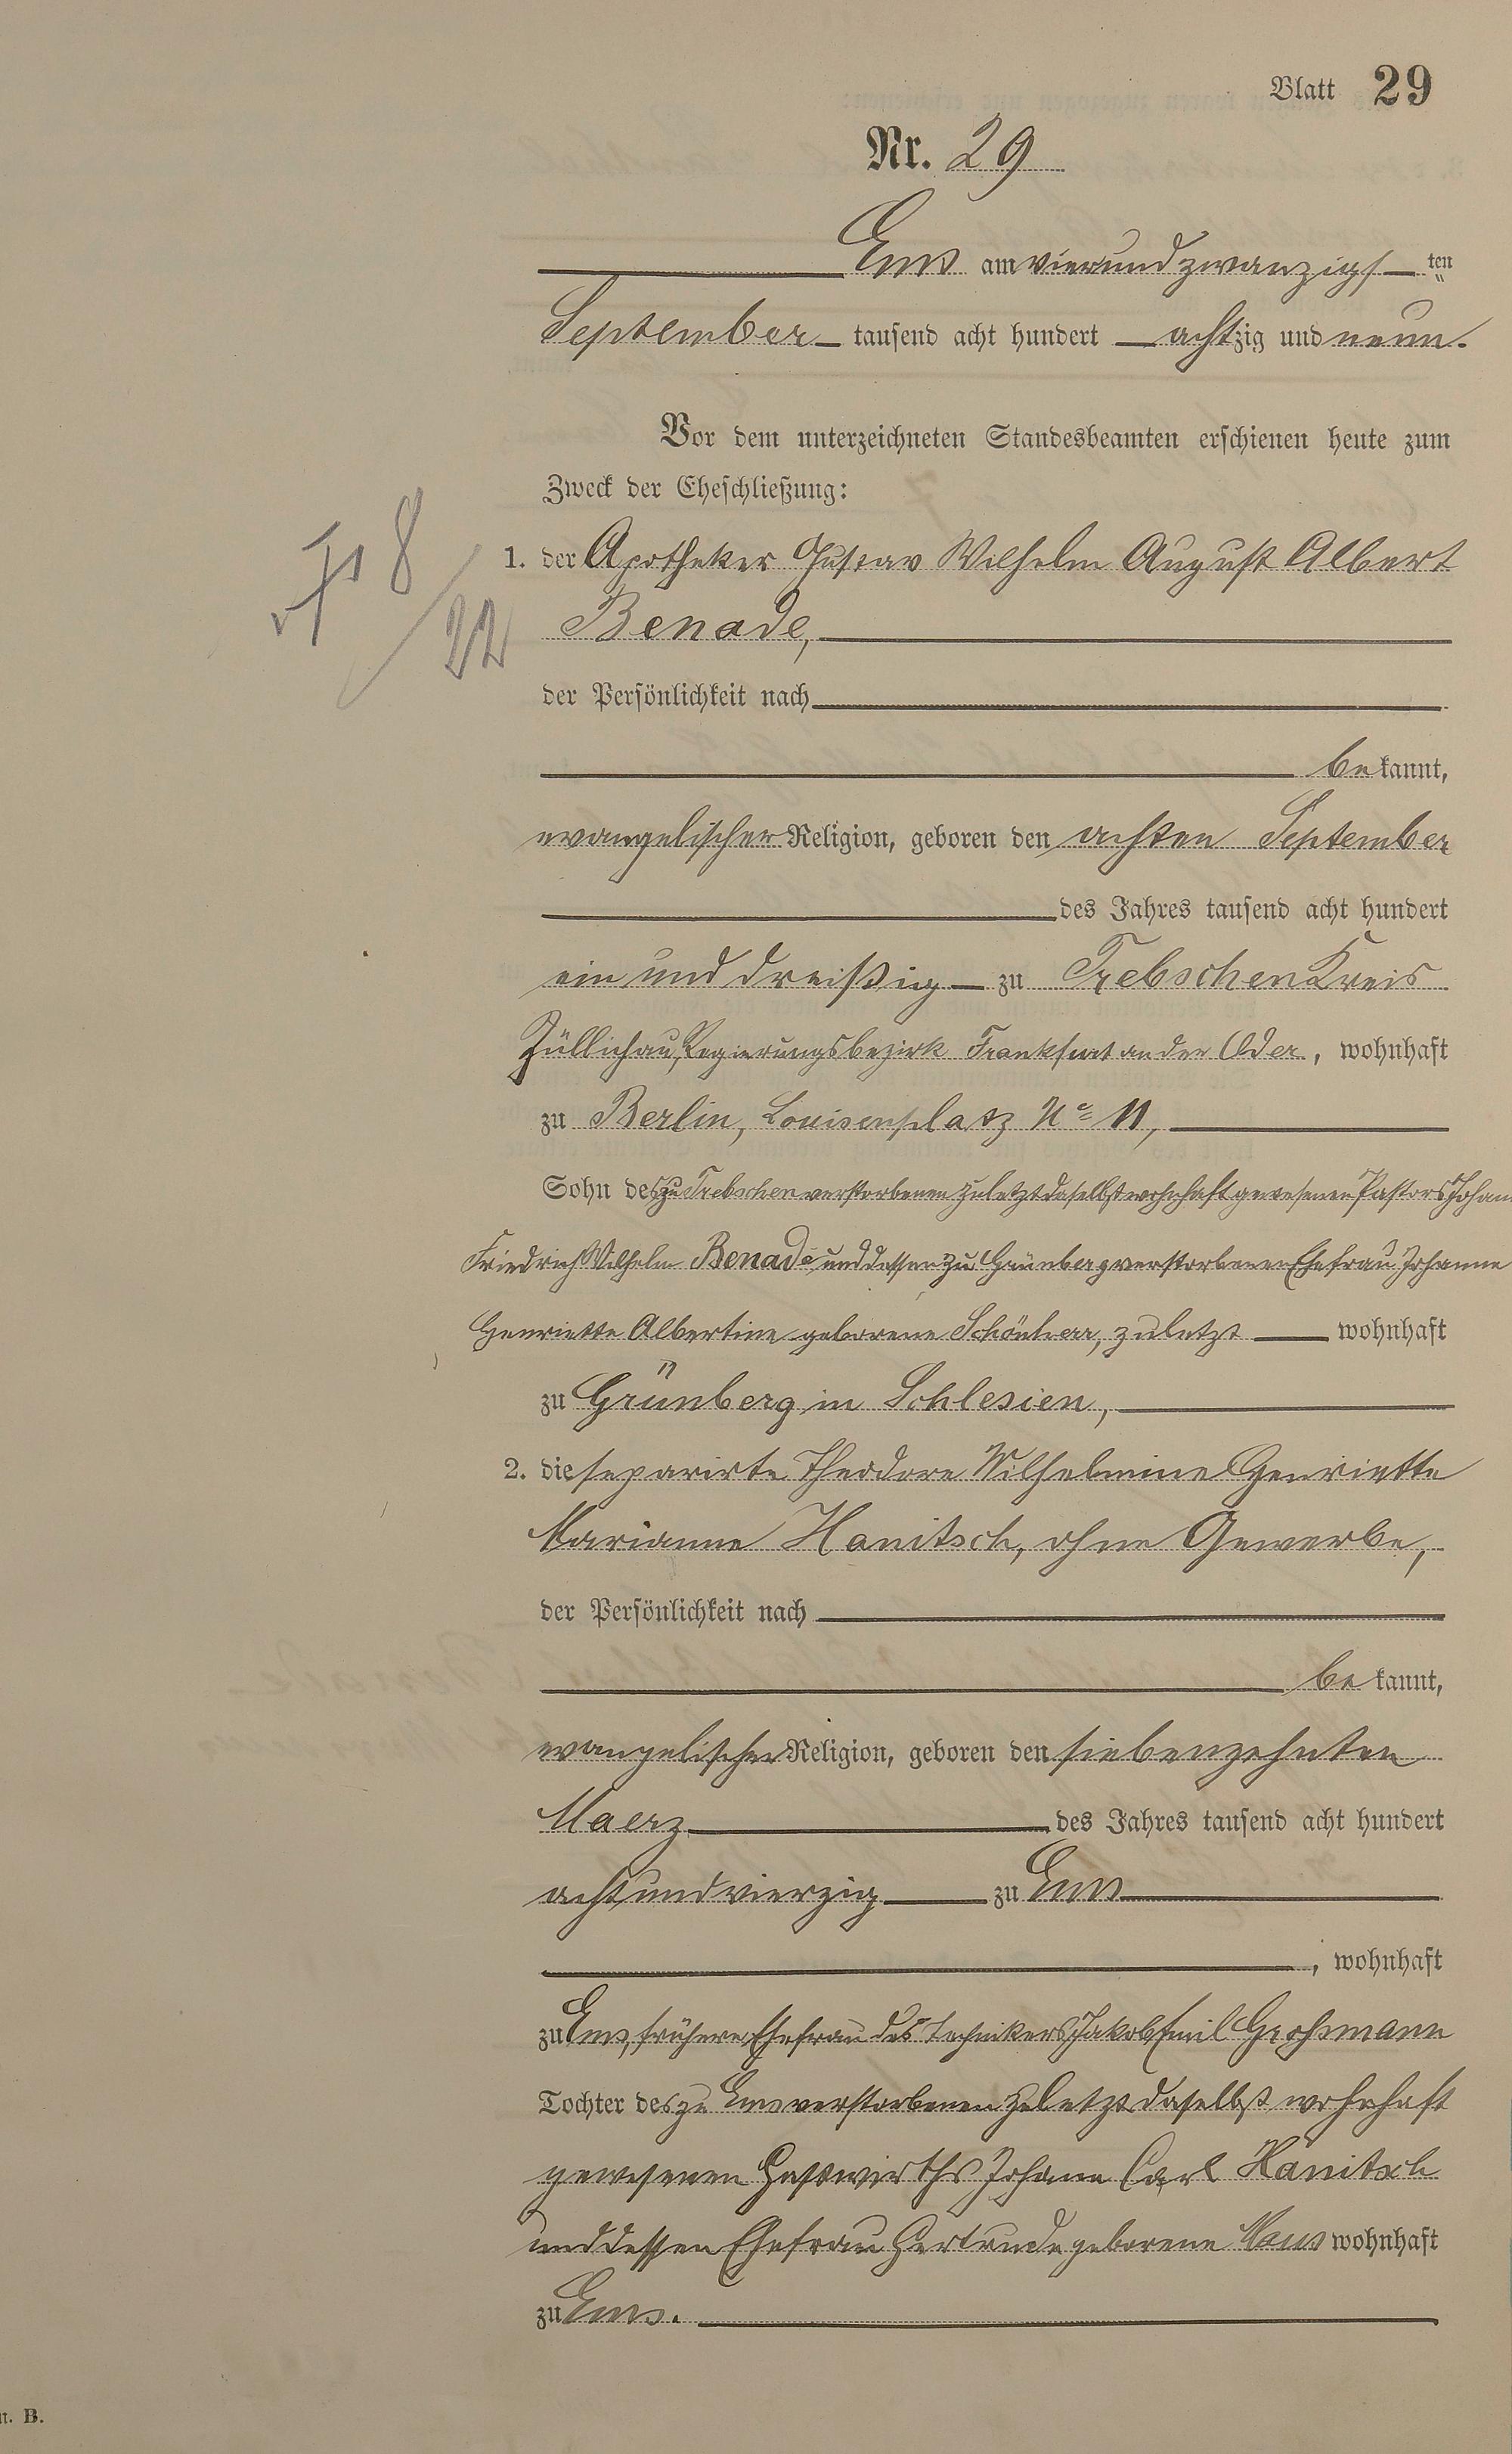 Blatt 29
Nr. 29
Ems am vierundzwanzigsten
September tausend acht hundert achtzig und neun.
Vor dem unterzeichneten Standesbeamten erschienen heute zum
Zweck der Eheschließung:
1. der Apotheker Gustav Wilhelm August Albert
Benade,
der Persönlichkeit nach
bekannt,
evangelischer Religion, geboren den achten September
des Jahres tausend acht hundert
ein und dreißig zu Trebschen Kreis
Züllichau, Regierungsbezirk Frankfurt an der Oder, wohnhaft
zu Berlin, Louisenplatz No 11,
Sohn des zu Trebschen verstorbenen zuletzt daselbst wohnhaft gewesenen Pastors Johann
Friedrich Wilhelm Benade und dessen zu Grünberg verstorbenen Ehefrau Johanne
Henriette Albertine geborene Schönherr, zuletzt wohnhaft
zu Grünberg in Schlesien,
2. die separirte Theodore Wilhelmine Henriette
Marianne Hanitsch, ohne Gewerbe,
der Persönlichkeit nach
bekannt,
evangelischer Religion, geboren den siebenzehnten
Maerz des Jahres tausend acht hundert
acht und vierzig zu Ems
, wohnhaft
zu Ems, frühere Ehefrau des Technikers Jakob Emil Grossmann
Tochter des zu Ems verstorbenen zuletzt daselbst wohnhaft
gewesenen Gastwirths Johann Carl Hänitsch
und dessen Ehefrau Gertrude geborene wohnhaft
zu Ems.
B.